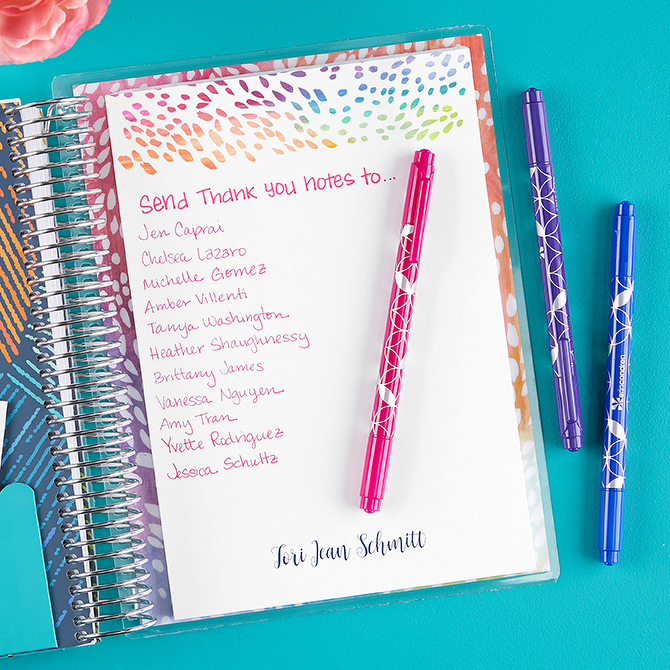 Send Thank you notes to...
Jen Caprai
Chelsea Lazaro
Michelle Gomez
Amber Villenti
Tanya Washington
Heather Shaughnessy
Brittany James
Vanessa Nguyen
Amy Tran
Yvette Rodriguez
Jessica Schultz
Tori Jean Schmitt
erincondren